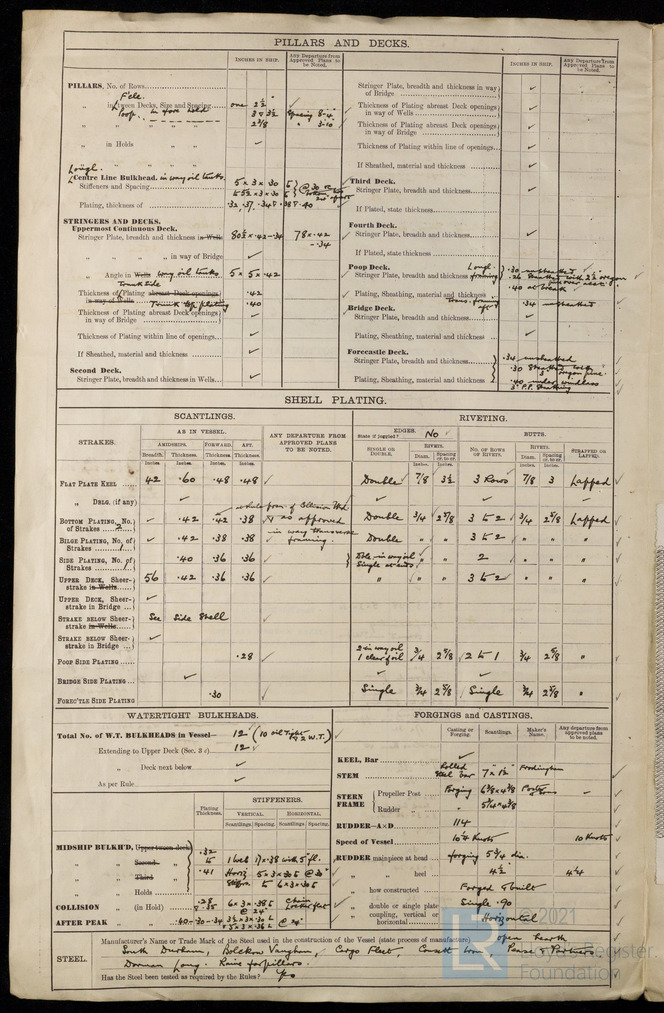 PILLARS AND DECKS.
INCHES IN SHIP.
Any Departure from Approved Plans to be Noted.
PILLARS, No. of Rows
F'cle.
in between Decks, Size and Spacing one 2½
Poop. in fore hold 3 & 3½ Spacing 8-4
2⅜ " 3-10
" in Holds
Longl.
Centre Line Bulkhead. in way oil tanks.
Stiffeners and Spacing 5 × 3 × .30
Plating, thickness of .32, .37, .34 & .38 & .40
STRINGERS AND DECKS.
Uppermost Continuous Deck.
Stringer Plate, breadth and thickness in Wells 80½ × .42 - .34 78 × .42 - .34
" " in way of Bridge
" Angle in Wells way oil tanks 5 × 5 × .42
Trunk side
Thickness of Plating abreast Deck openings in way of Wells .42
Trunk top plating .40
Thickness of Plating abreast Deck openings in way of Bridge
Thickness of Plating within line of openings
If Sheathed, material and thickness
Second Deck.
Stringer Plate, breadth and thickness in Wells
INCHES IN SHIP.
Any Departure from Approved Plans to be Noted.
Stringer Plate, breadth and thickness in way of Bridge
Thickness of Plating abreast Deck openings in way of Wells
Thickness of Plating abreast Deck openings in way of Bridge
Thickness of Plating within line of openings
If Sheathed, material and thickness
Third Deck.
Stringer Plate, breadth and thickness
If Plated, state thickness
Fourth Deck.
Stringer Plate, breadth and thickness
If Plated, state thickness
Poop Deck. Longl. framing
Stringer Plate, breadth and thickness .30 unsheathed
Plating, Sheathing, material and thickness .40 at break
Trans. framing aft
Bridge Deck. .34 unsheathed
Stringer Plate, breadth and thickness
Plating, Sheathing, material and thickness
Forecastle Deck.
Stringer Plate, breadth and thickness .34 unsheathed
.30 Sheathed with 3" oregon pine.
Plating, Sheathing, material and thickness .40 under windlass
3" P.P. Sheathing
SHELL PLATING.
SCANTLINGS.
RIVETING.
STRAKES.
AS IN VESSEL.
AMIDSHIPS. FORWARD. AFT.
Breadth. Thickness. Thickness. Thickness.
Inches. Inches. Inches. Inches.
ANY DEPARTURE FROM APPROVED PLANS TO BE NOTED.
EDGES.
State if joggled? No
SINGLE OR DOUBLE.
RIVETS.
Diam. Spacing cr. to cr.
BUTTS.
NO. OF ROWS OF RIVETS.
RIVETS.
Diam. Spacing cr. to cr.
STRAPPED OR LAPPED.
FLAT PLATE KEEL 42 .60 .48 .48 Double 7/8 3½ 3 Rows 7/8 3 Lapped
" DBLG. (if any)
BOTTOM PLATING, No. of Strakes 2 .42 .42 .38 & as approved in way transverse framing. Double 3/4 2⅞ 3 to 2 3/4 2⅝ Lapped
BILGE PLATING, No. of Strakes 1 .42 .38 .38 Double " " 3 to 2 " " "
SIDE PLATING, No. of Strakes 1 .40 .36 .36 Dble. in way oil Single at ends " " 2 " " "
UPPER DECK, Sheerstrake in Wells 56 .42 .36 .36 " " " 3 to 2 " " "
UPPER DECK, Sheerstrake in Bridge
STRAKE BELOW Sheerstrake in Wells See Side Shell
STRAKE BELOW Sheerstrake in Bridge
POOP SIDE PLATING .28 2 in way oil 1 clear of oil 3/4 2⅝ 2 to 1 3/4 2⅝ "
BRIDGE SIDE PLATING
FOREC'TLE SIDE PLATING .30 Single 3/4 2⅝ Single 3/4 2⅝ "
WATERTIGHT BULKHEADS.
Total No. of W.T. BULKHEADS in Vessel— 12 (10 oil tight & 2 W.T.)
Extending to Upper Deck (Sec. 3 c) 12
" Deck next below
As per Rule
Plating Thickness.
STIFFENERS.
VERTICAL. HORIZONTAL.
Scantlings. Spacing. Scantlings. Spacing.
MIDSHIP BULKH'D, Upper tween deck .32
" " Second " to 1 Web 17 × .38 with 5" fl.
" " Third " .41 Horiz 5 × 3 × .30 @ 30"
" " Holds to 6 × 3 × .30
COLLISION " (in Hold) .28 & .35 6 × 3 × .38 @ 24"
AFTER PEAK " .40-.30-.34 3½ × 3 × .30 @ 24"
FORGINGS and CASTINGS.
Casting or Forging. Scantlings. Maker's Name. Any departure from approved plans to be noted.
KEEL, Bar
STEM Rolled Steel bar 7 × 1½ Frodingham
STERN FRAME
Propeller Post Forging
Rudder " "
RUDDER—A×D 114
Speed of Vessel 10¼ Knots 10 Knots
RUDDER mainpiece at head forging 5¾ dia.
" " heel 4½ 4¼
" how constructed Forged & built
" double or single plate Single .90
" coupling, vertical or horizontal Horizontal
© 2021
Lloyd's Register
Foundation
STEEL.
Manufacturer's Name or Trade Mark of the Steel used in the construction of the Vessel (state process of manufacture) open hearth
South Durham, Bolckow Vaughan, Cargo Fleet, Consett Iron, Pease & Partners
Dorman Long. Raine for pillars.
Has the Steel been tested as required by the Rules? Yes